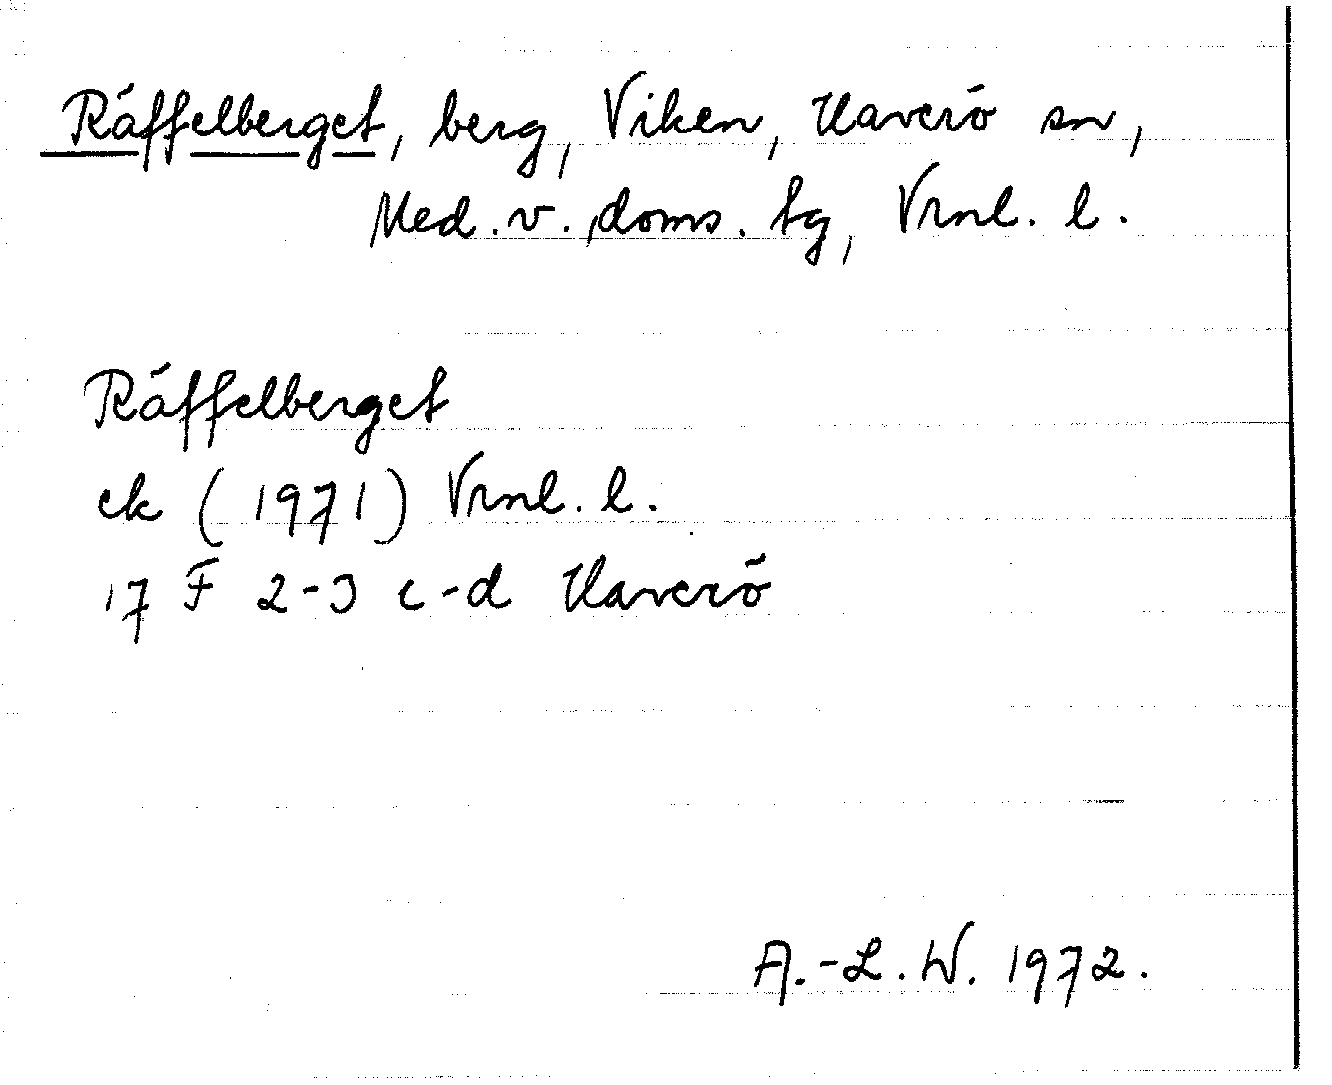 Räffelberget, berg, Viken, Haverö sn,
Med. v. doms. tg, Vrnl. l.
Räffelberget
ek (1971) Vrnl. l.
17 F 2-3 c-d Haverö
A.-L. W. 1972.